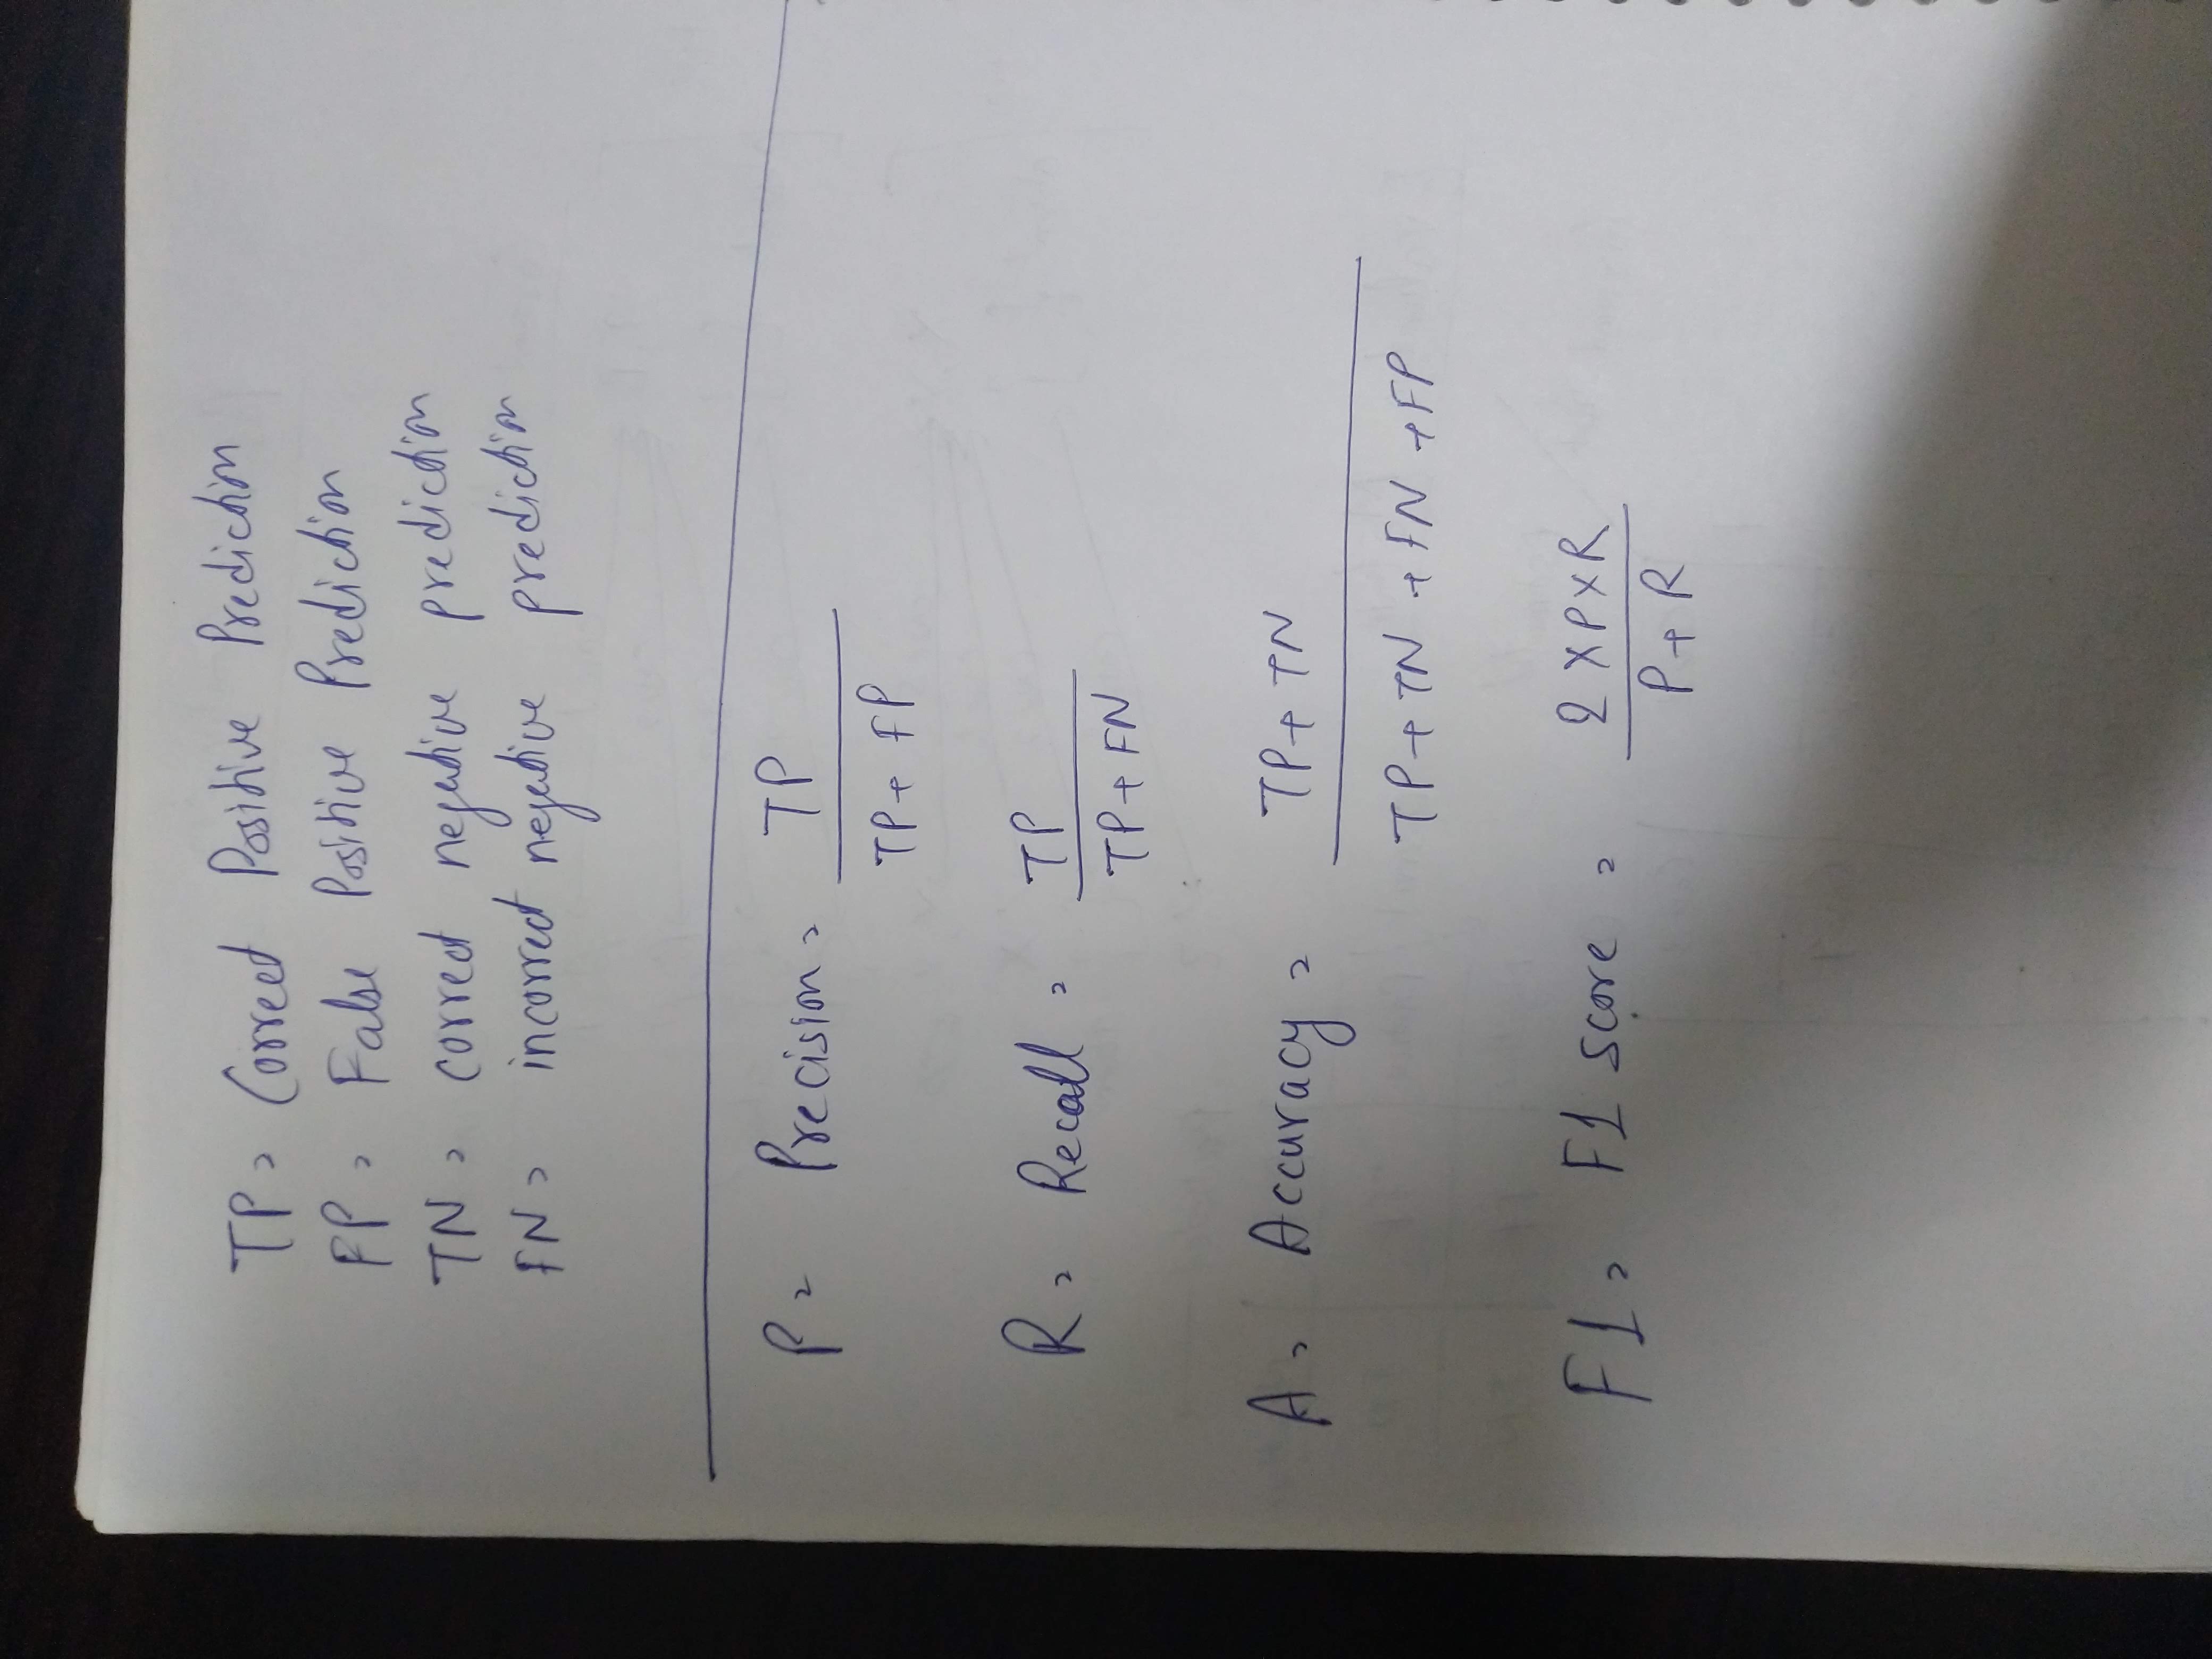 TP = Correct Positive Prediction
FP = False Positive Prediction
TN = correct negative prediction
FN = incorrect negative prediction
P = Precision = TP
TP + FP
R = Recall = TP
TP + FN
A = Accuracy = TP + TN
TP + TN + FN + FP
F1 = F1 score = 2 X P X R
P + R